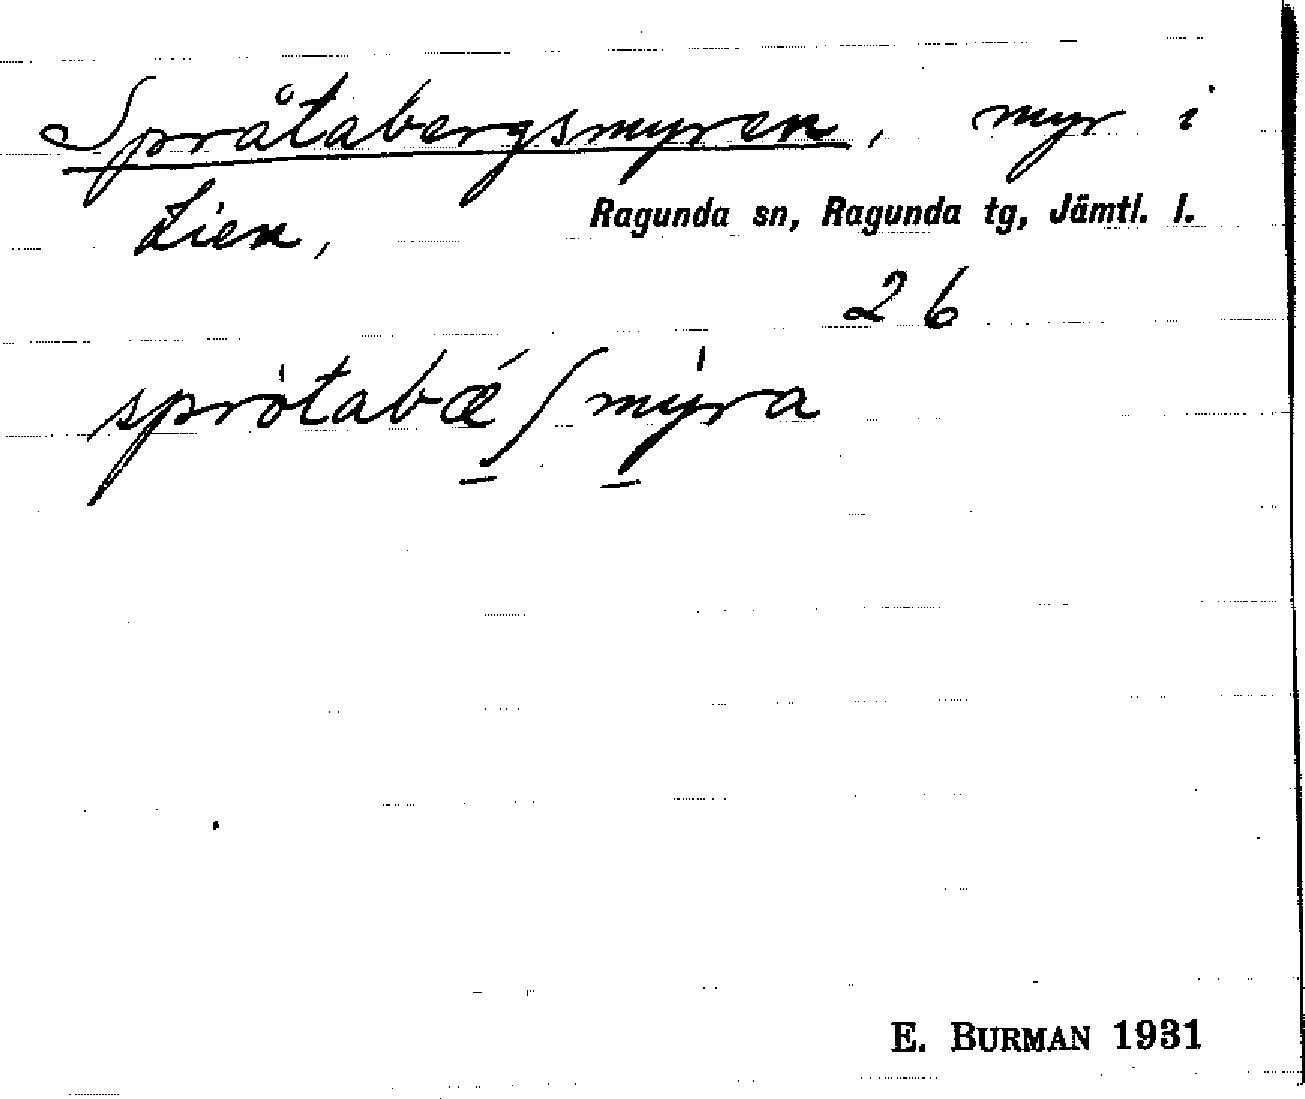 Språtabergsmyren, myr i
Lien, Ragunda sn, Ragunda tg, Jämtl. l.
26
spròtabǽʃmỳra
E. BURMAN 1931